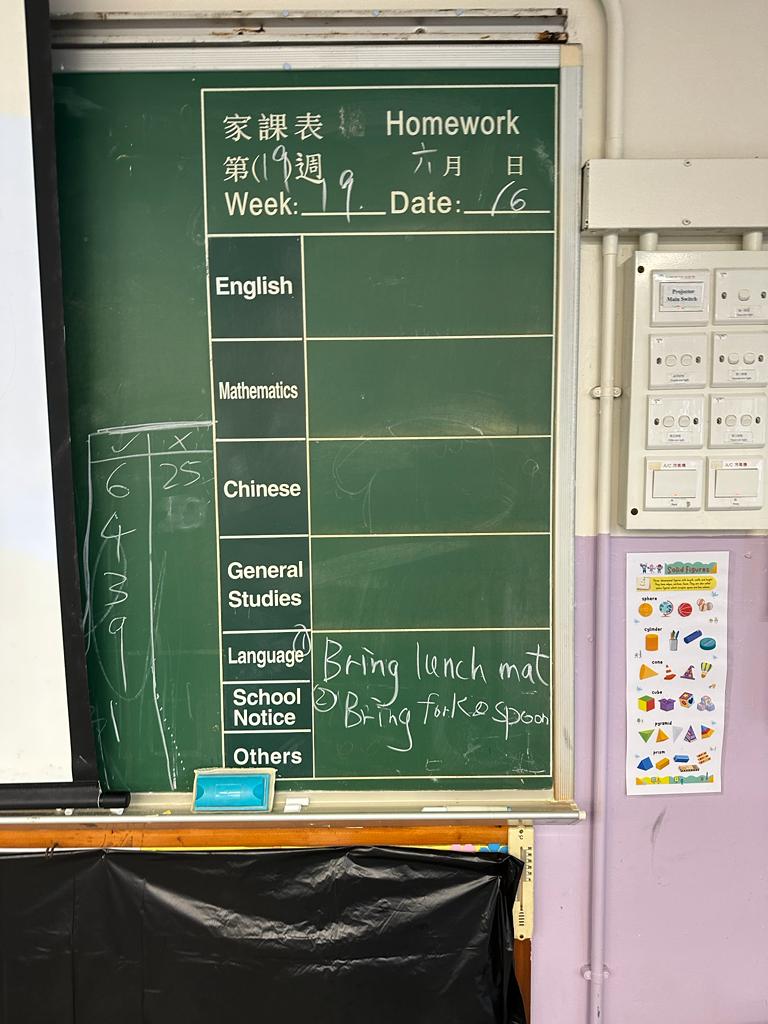 家課表 Homework
第(19)週 六月 日
Week: 19 Date: /6
English
Mathematics
Chinese
General Studies
Language ① Bring lunch mat
School Notice ② Bring fork & spoon
Others
✓ X
6 25
4
3
9
1
Projector
Main Switch
Solid Figures
sphere
cylinder
cone
cube
pyramid
prism